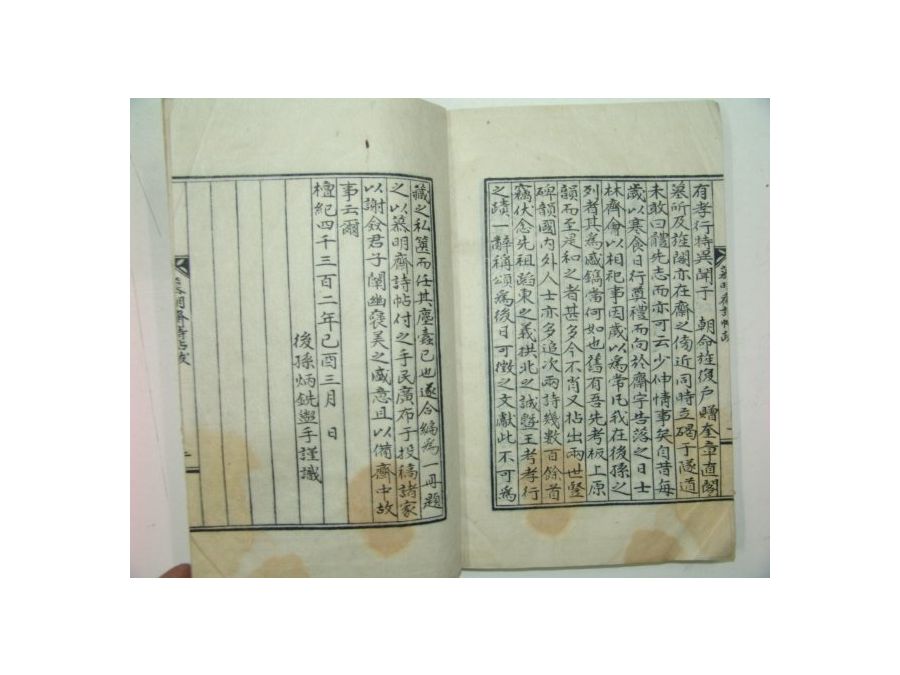 有孝行特異聞于 朝命旌復戶贈奎章直閣
墓所及旌閣亦在齋之傍近同時立碣于隧道
未敢曰體先志而亦可云少伸情事矣自昔每
歲以寒食日行奠禮而向於齋宇告落之日士
林齊會以相祀事因歲以爲常凡我在後孫之
列者其爲感鎬當何如也舊有吾先考板上原
韻而至是和之者甚多今不肖又拈出兩世竪
碑韻國內外人士亦多追次兩詩幾數百餘首
竊伏念先祖蹈東之義拱北之誠曁王考孝行
之蹟一辭稱頌爲後日可徵之文獻此不可爲
藏之私篋而任其塵蠹已也遂合編爲一冊題
之以慕明齋詩帖付之手民廣布于投稿諸家
以謝僉君子闡幽褒美之盛意且以備齋中故
事云爾
檀紀四千三百二年己酉三月 日
後孫炳銑盥手謹識